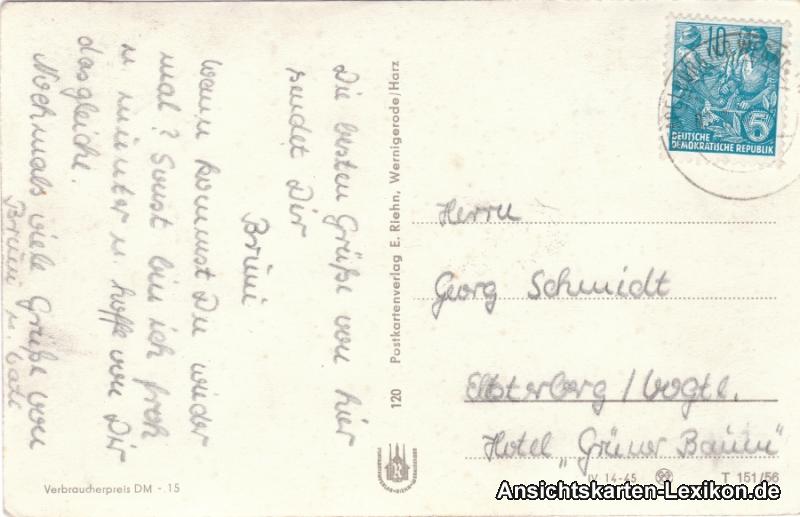 Die besten Grüße von hier
sendet Dir
Brüni
Wann kommst Du wieder
mal? Sonst bin ich froh
u. munter u. hoffe von Dir
dasgleiche.
Nochmals viele Grüße von
Brüni u.
120 Postkartenverlag E. Riehn, Wernigerode/Harz
10
5
DEUTSCHE
DEMOKRATISCHE REPUBLIK
Herrn
Georg Schmidt
Elsterberg/Vogtl.
Hotel „Grüner Baum"
IV 14-45 T 151/56
Verbraucherpreis DM -.15
Ansichtskarten-Lexikon.de